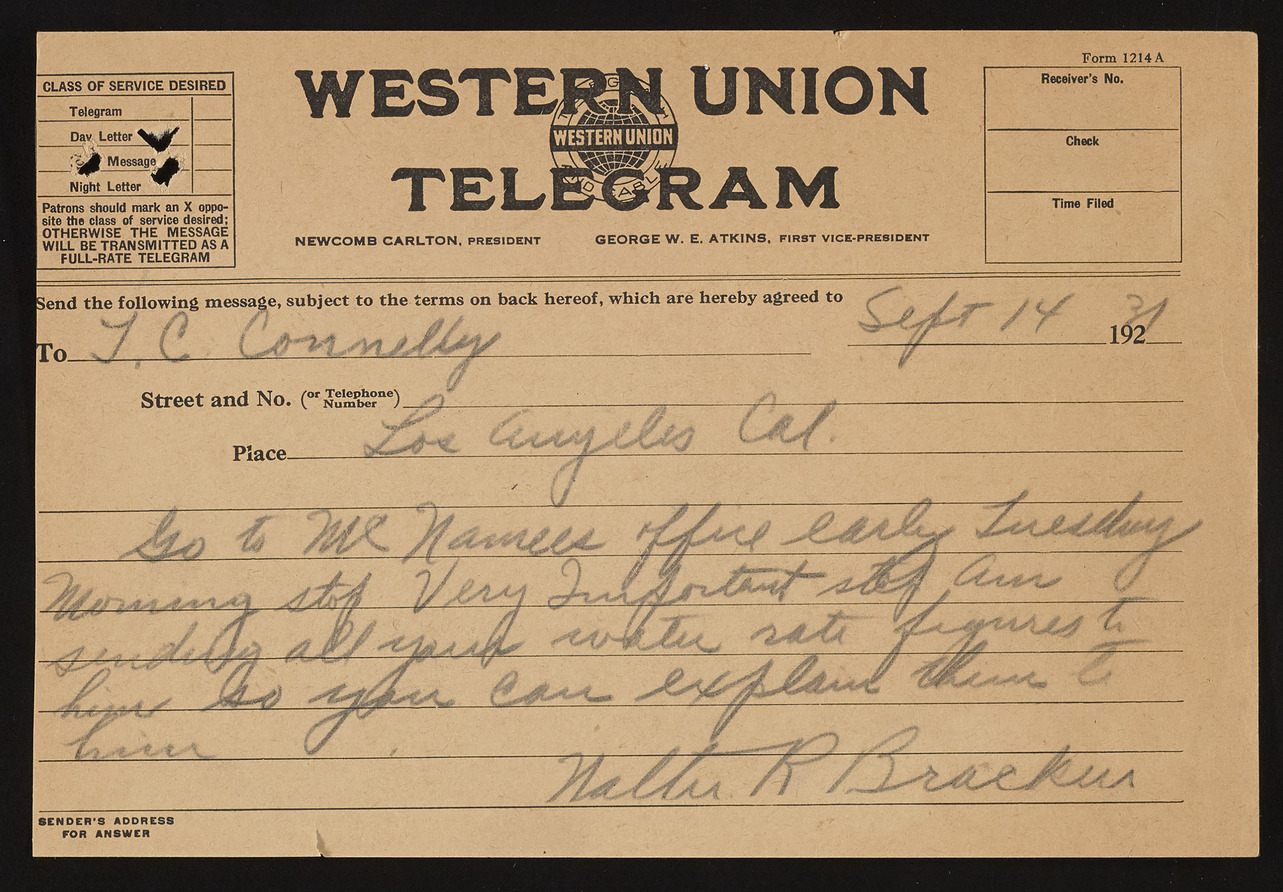 Form 1214 A
CLASS OF SERVICE DESIRED
Telegram
Day Letter
Message
Night Letter
Patrons should mark an X oppo-
site the class of service desired;
OTHERWISE THE MESSAGE
WILL BE TRANSMITTED AS A
FULL-RATE TELEGRAM
WESTERN UNION
WESTERN UNION
TELEGRAM
NEWCOMB CARLTON, PRESIDENT
GEORGE W. E. ATKINS, FIRST VICE-PRESIDENT
Receiver's No.
Check
Time Filed
Send the following message, subject to the terms on back hereof, which are hereby agreed to
Sept 14 192 31
To T. C. Connelly
Street and No. (or Telephone Number)
Place Los Angeles Cal.
Go to Mc Namees office early Tuesday
Morning stop Very Important stop am
sending all your water rate figures to
him so you can explain them to
him
Walter R Bracken
SENDER'S ADDRESS
FOR ANSWER